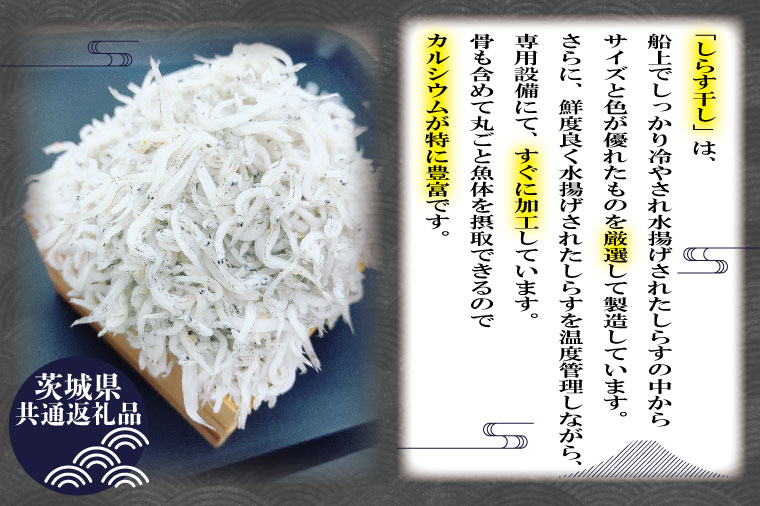 「しらす干し」は、
船上でしっかり冷やされ水揚げされたしらすの中から
サイズと色が優れたものを厳選して製造しています。
さらに、鮮度良く水揚げされたしらすを温度管理しながら、
専用設備にて、すぐに加工しています。
骨も含めて丸ごと魚体を摂取できるので
カルシウムが特に豊富です。
茨城県
共通返礼品